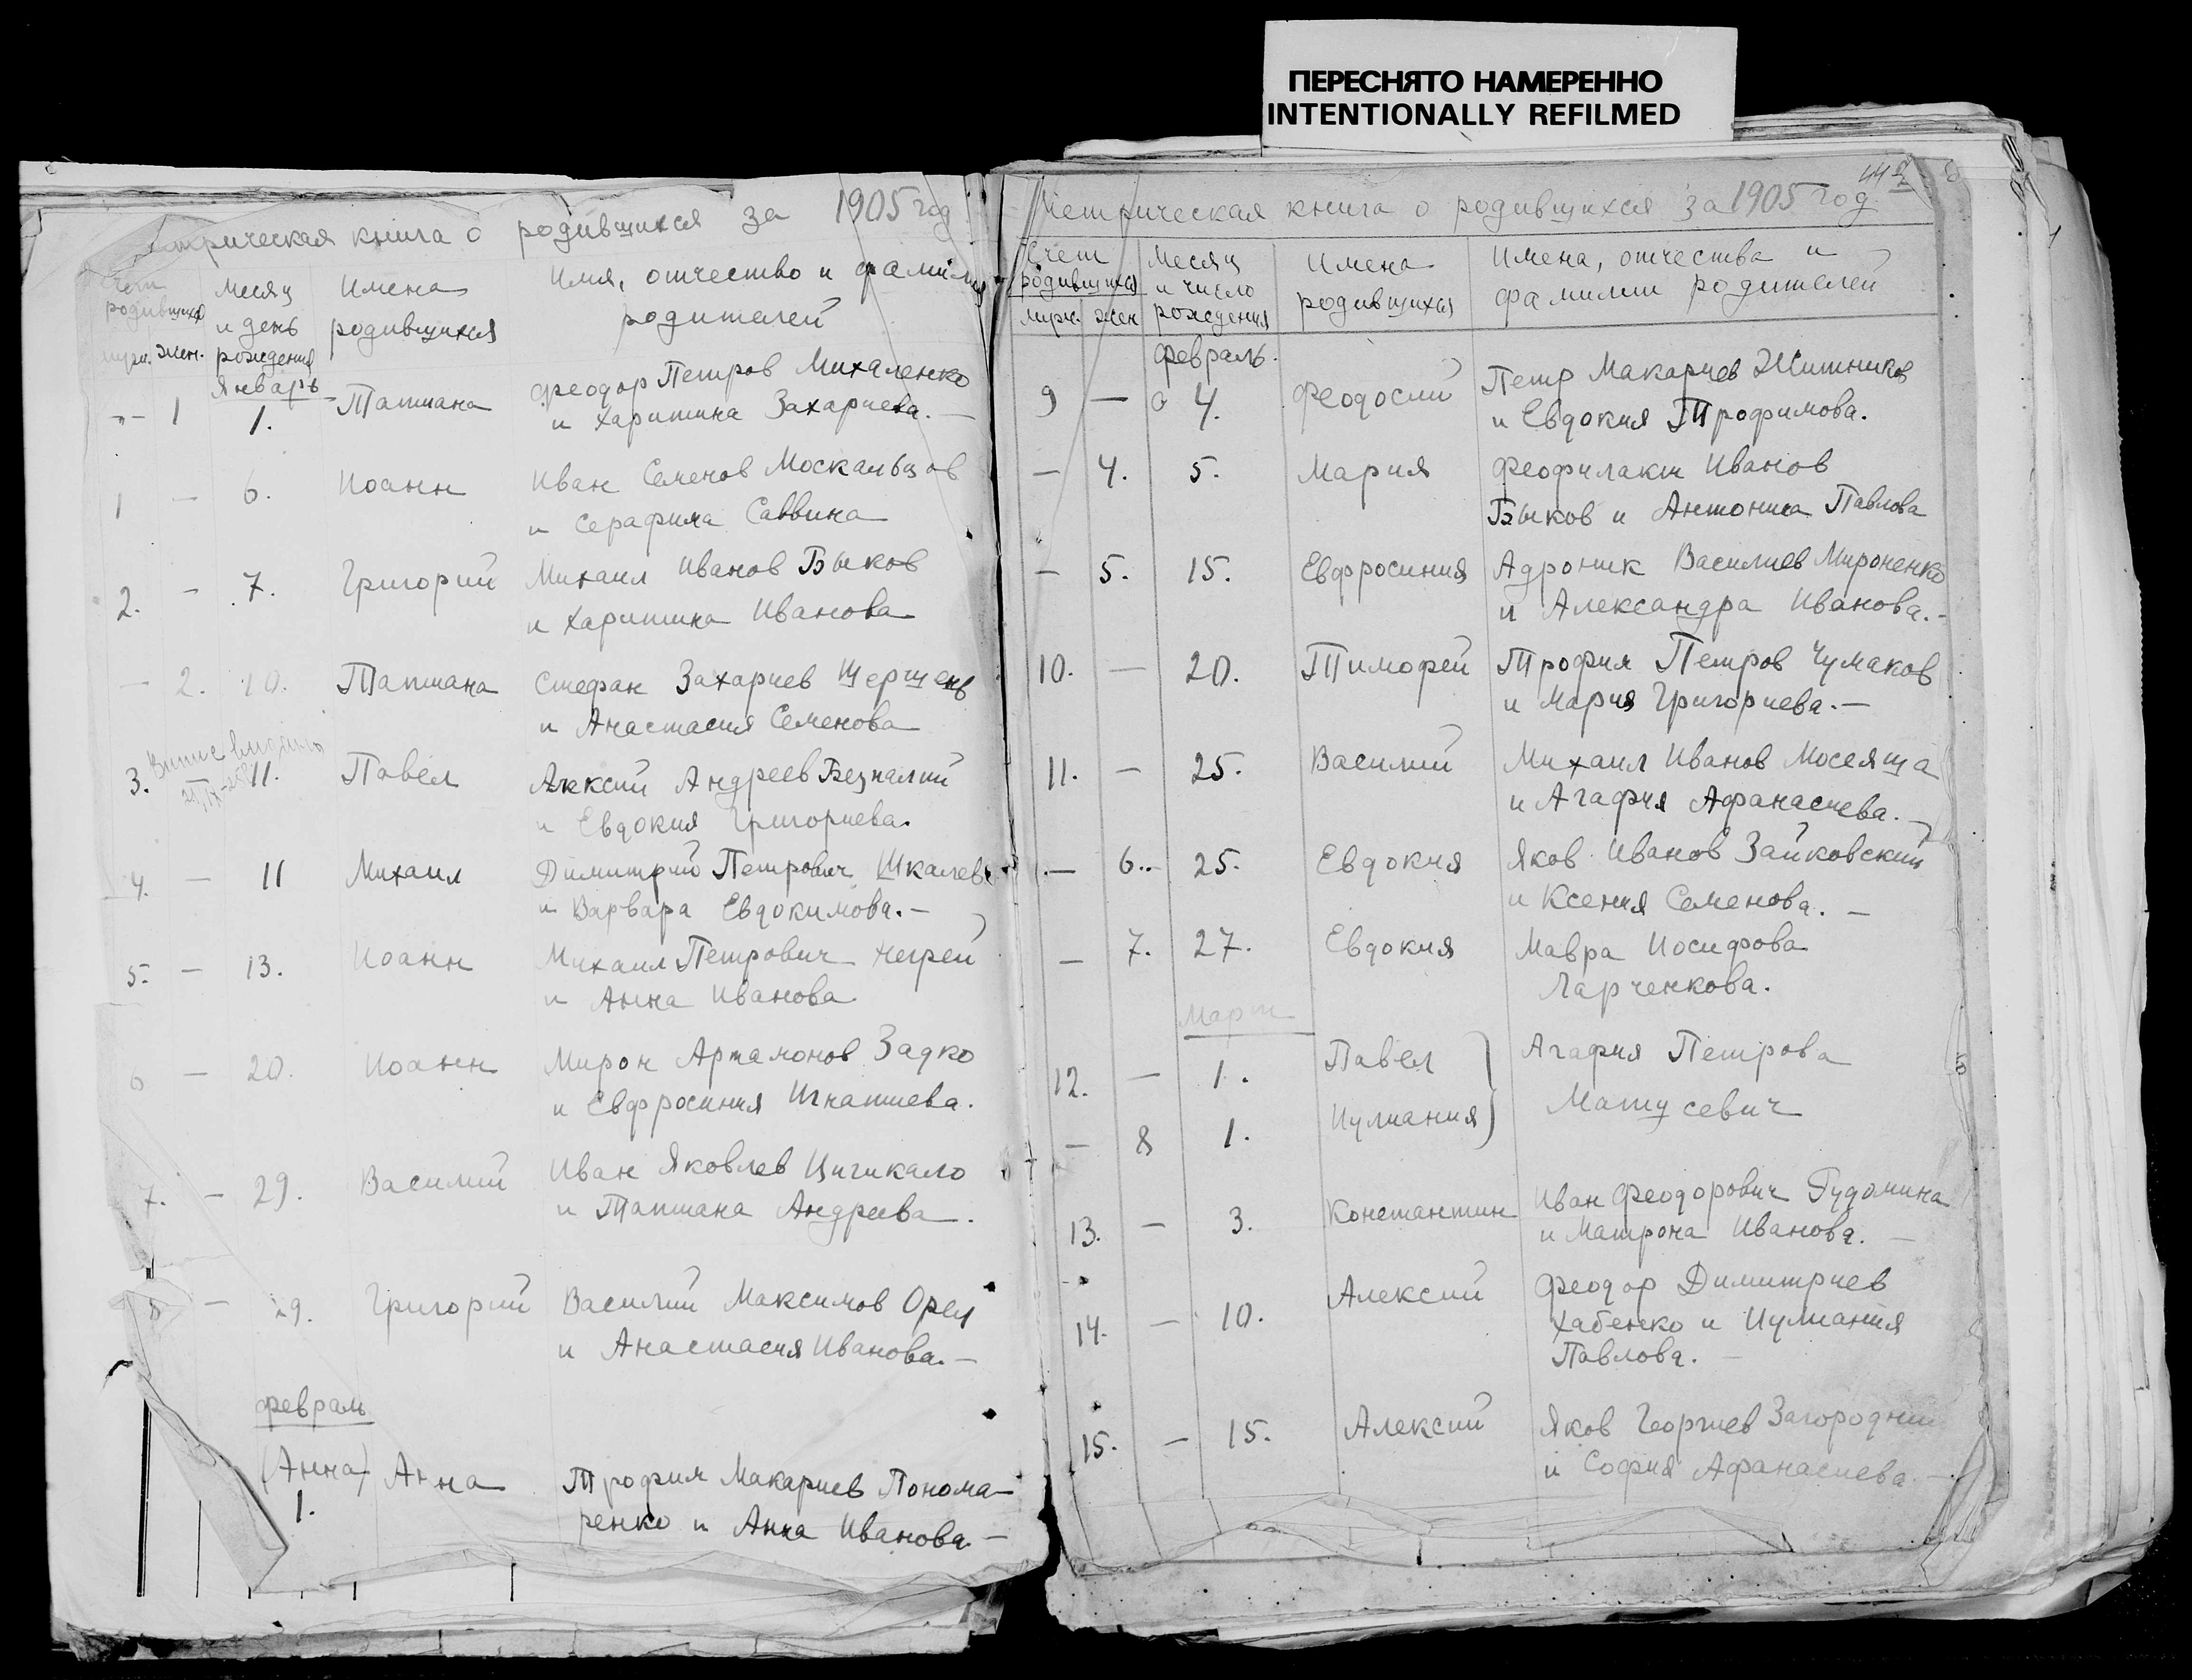 ПЕРЕСНЯТО НАМЕРЕННО
INTENTIONALLY REFILMED
книга о родившихся за 1905 год
Счет родившихся
муж. жен.
Месяц и день рождения
Имена родившихся
Имя, отчество и фамилия родителей
Январь
— 1 1. Татиана Феодор Петров Михаленко
и Харитина Захариева. —
1 — 6. Иоанн Иван Семенов Москальцов
и Серафима Саввина
2. — 7. Григорий Михаил Иванов Быков
и Харитина Иванова
— 2. 10. Татиана Стефан Захариев Шершень
и Анастасия Семенова
3. 11. Павел Алексий Андреев Безналий
и Евдокия Григориева.
4. — 11 Михаил Димитрий Петрович
и Варвара Евдокимова. —
5. — 13. Иоанн Михаил Петрович Негрей
и Анна Иванова
6 — 20. Иоанн Мирон Артамонов Задко
и Евфросиния Игнатиева.
7. — 29. Василий Иван Яковлев Цигикало
и Татиана Андреева.
8 — 29. Григорий Василий Максимов Орел
и Анастасия Иванова. —
февраль
(Анна) Анна Трофим Макариев Понома-
1. ренко и Анна Иванова —
Метрическая книга о родившихся за 1905 год
Счет родившихся
муж. жен
Месяц и число рождения
Имена родившихся
Имена, отчества и фамилии родителей
февраль.
9 — 4. Феодосий Петр Макариев Житников
и Евдокия Трофимова.
— 4. 5. Мария Феофилакт Иванов
Быков и Антонина Павлова
— 5. 15. Евфросиния Адроник Василиев Мироненко
и Александра Иванова. -
10. — 20. Тимофей Трофим Петров Чумаков
и Мария Григориева. —
11. — 25. Василий Михаил Иванов Моселща
и Агафия Афанасиева. —
— 6. 25. Евдокия Яков Иванов Зайковский
и Ксения Семенова. —
— 7. 27. Евдокия Мавра Иосифова
Ларченкова.
Март
12. — 1. Павел Агафия Петрова
— 8 1. Иулиания Матусевич
13. — 3. Константин Иван Феодорович Гудомина
и Матрона Иванова. —
14. — 10. Алексий Феодор Димитриев
Хабенко и Иулиания
Павлова. —
15. — 15. Алексий Яков Георгиев Загородний
и София Афанасиева. —